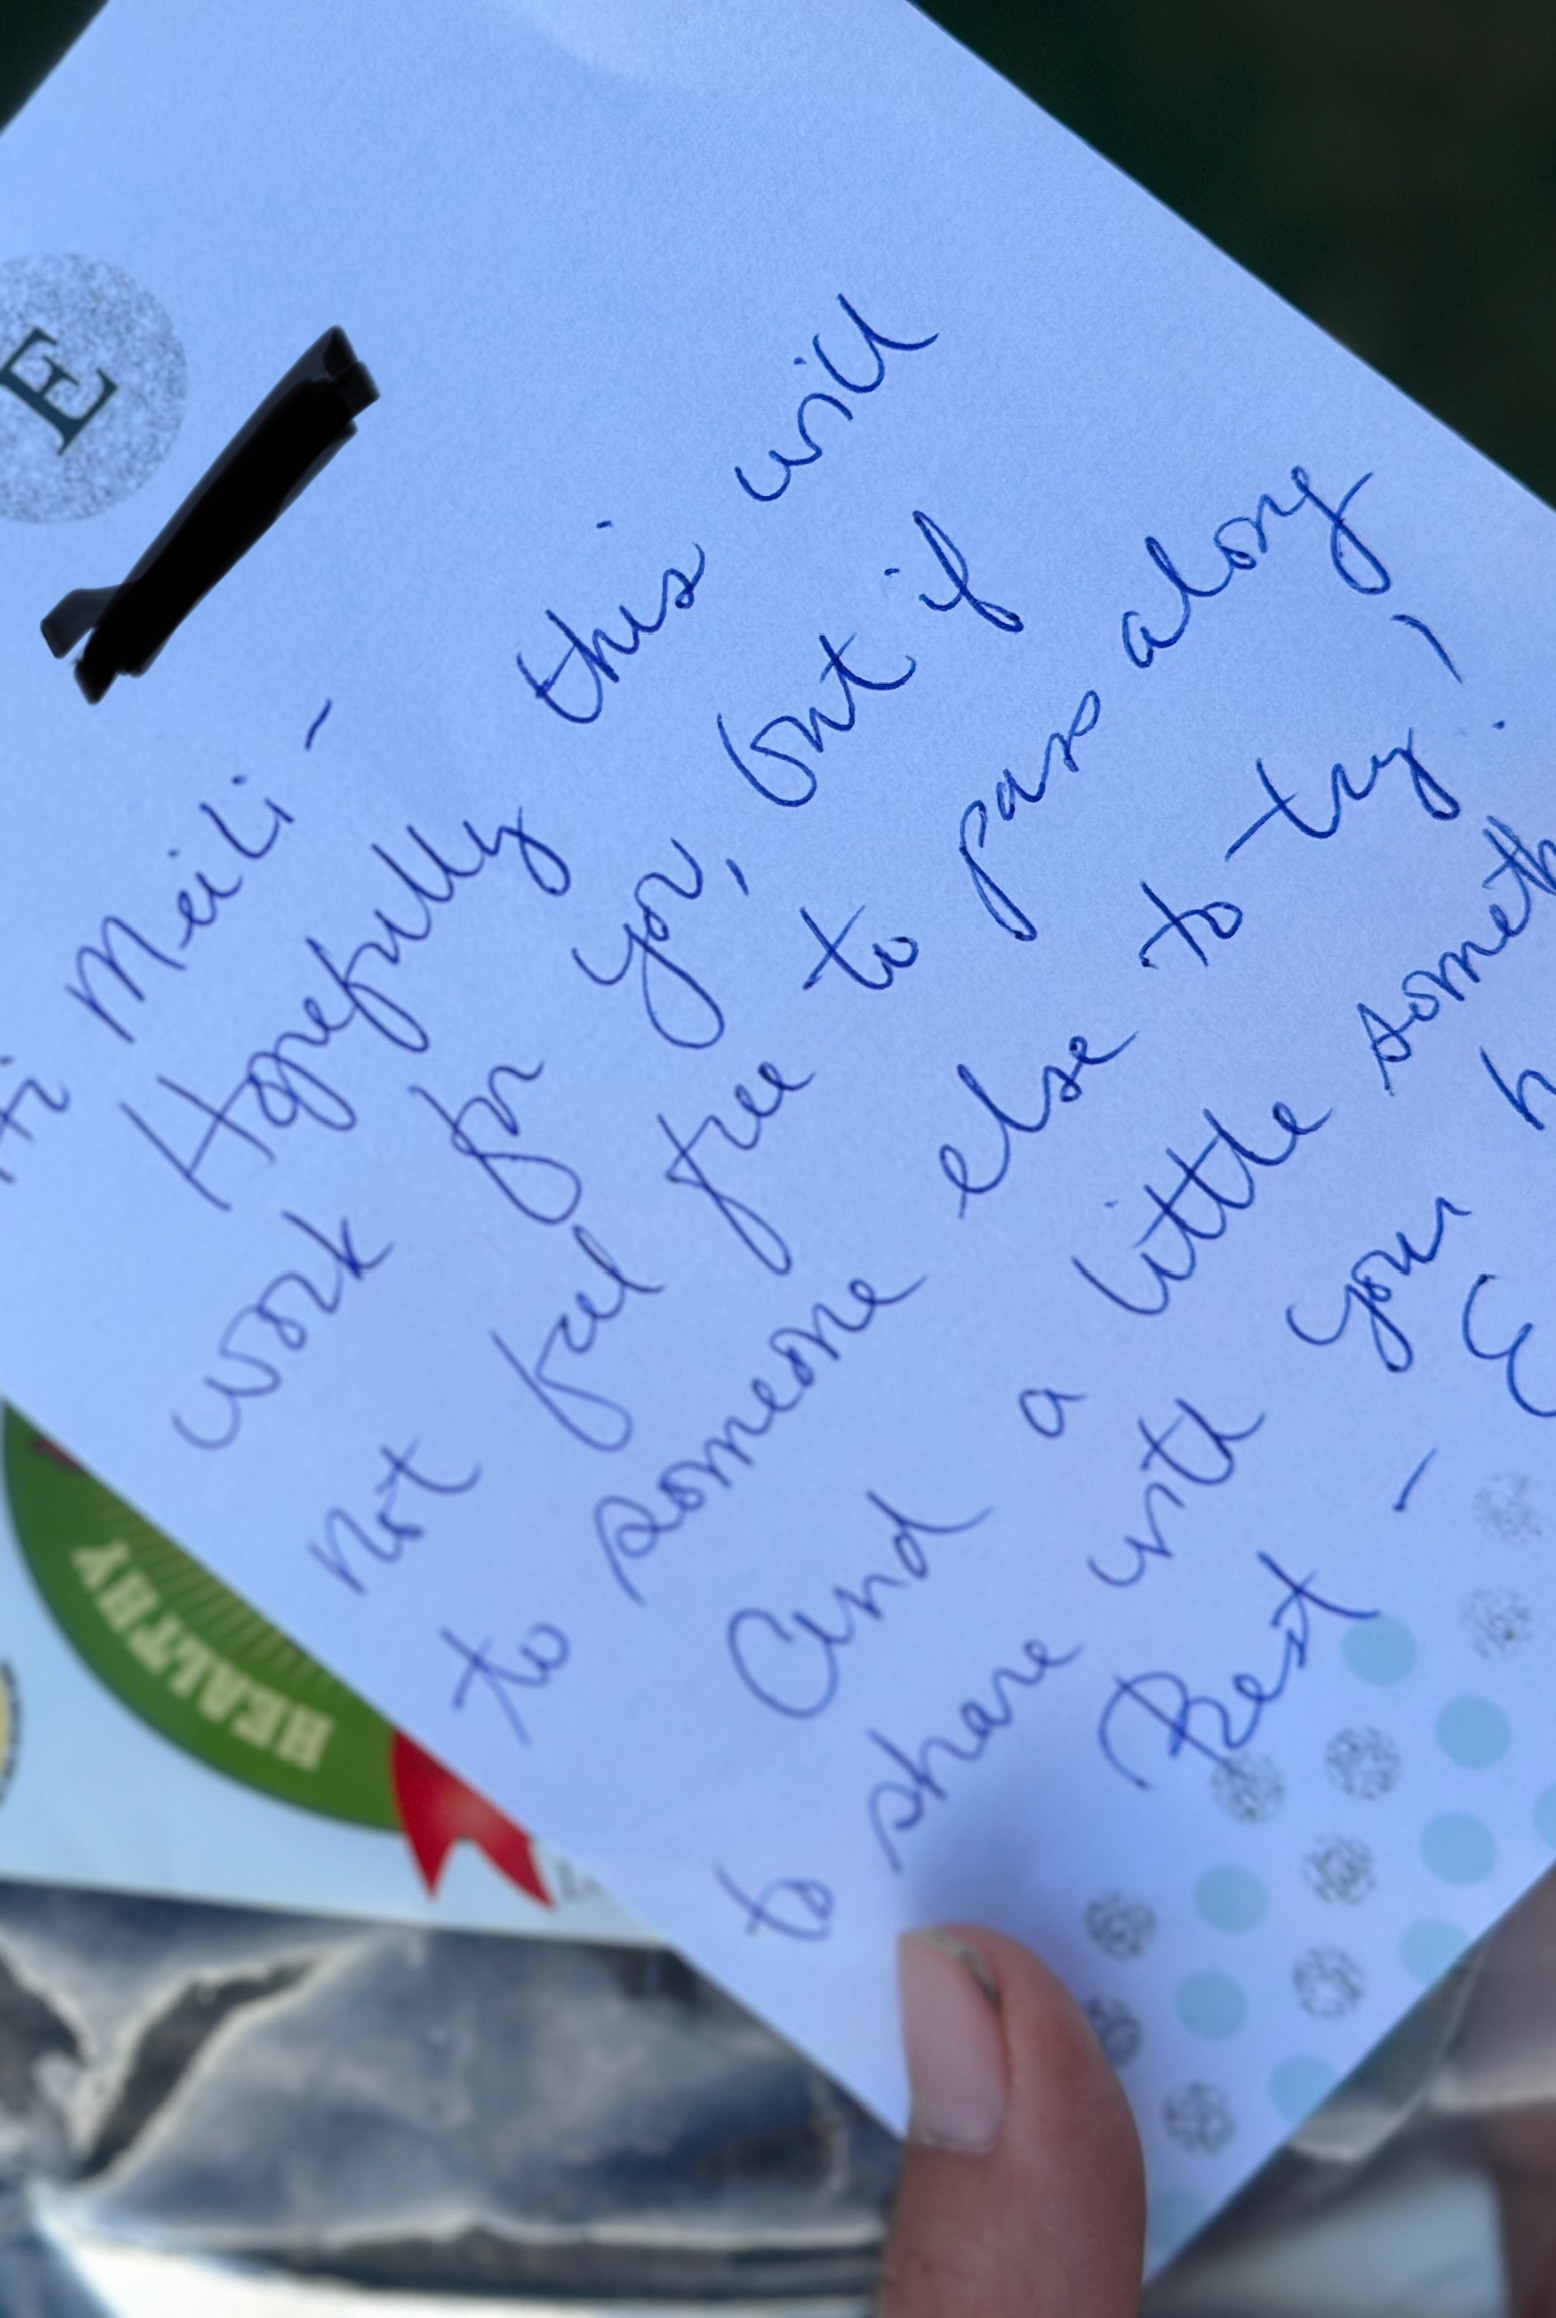 E
Hi Meili -
Hopefully this will
work for you, but if
not feel free to pass along
to someone else to try!
And a little someth
to share with your h
Best -
E
HEALTHY